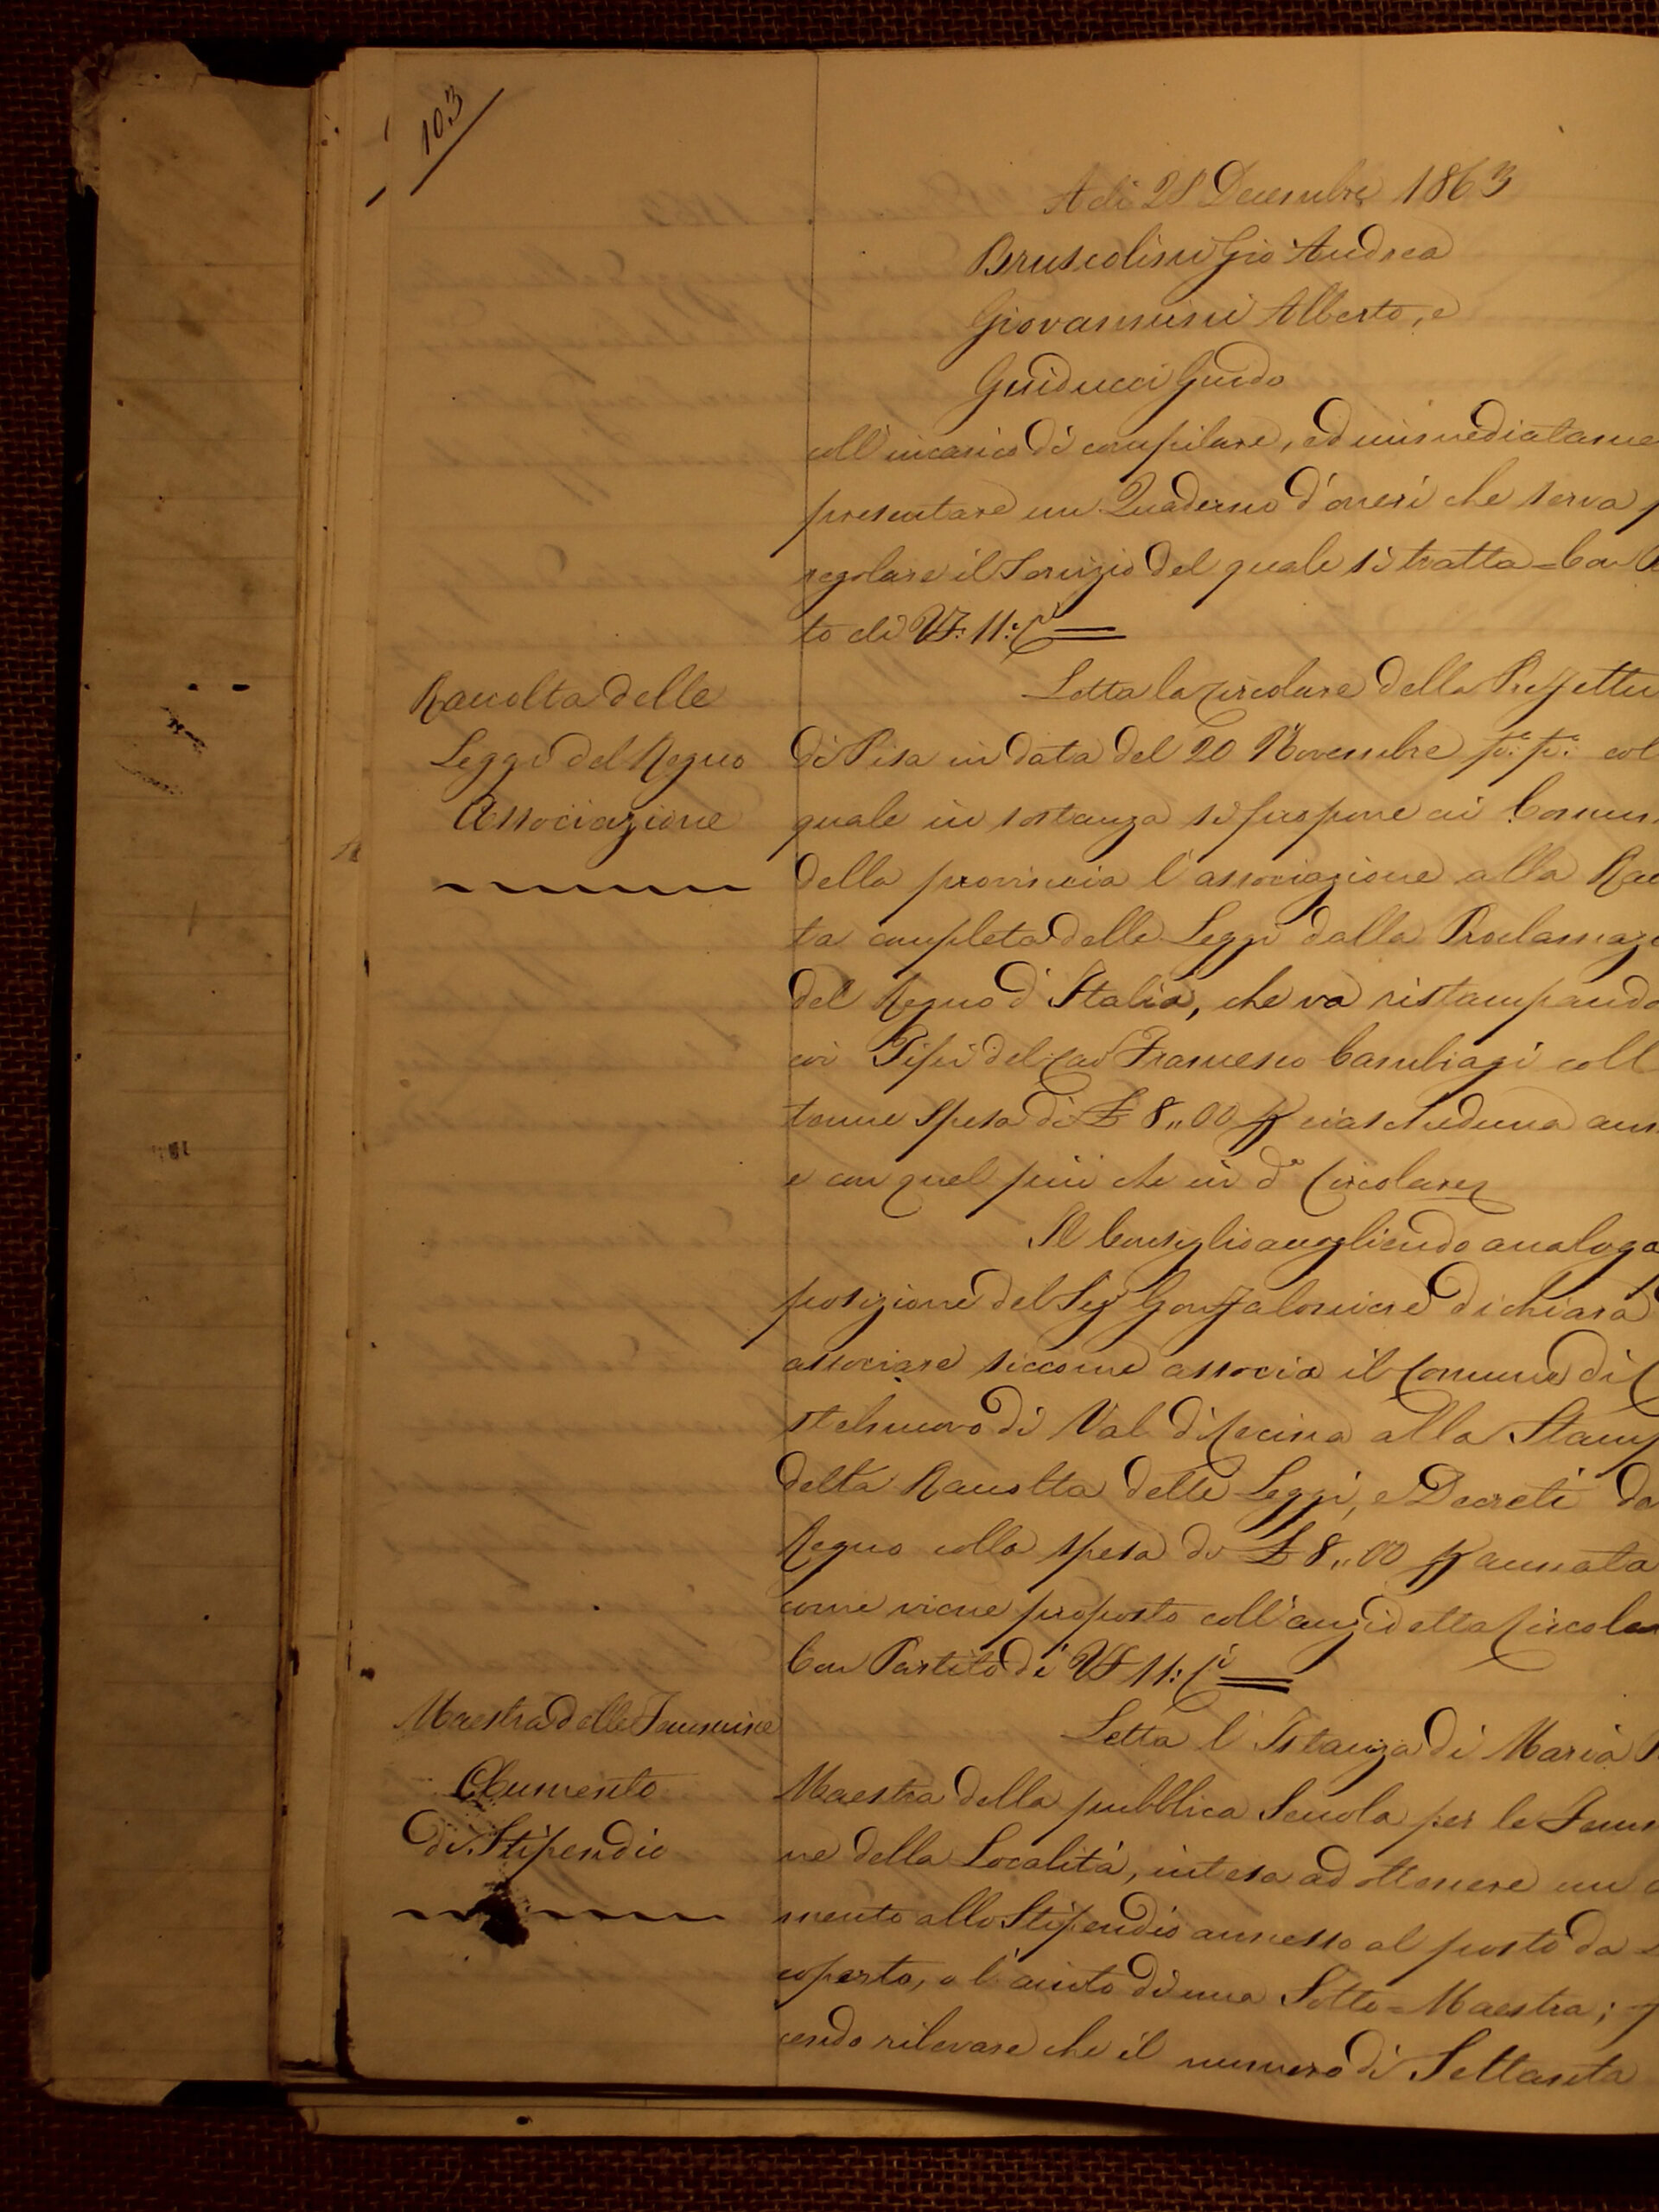 103
Adi 28 Decembre 1863
Bruscolini Gio Andrea
Giovannini Alberto, e
Guiducci Guido
coll'incarico di compilare, ed immediatame
presentare un Quaderno d'oneri che serva p
regolare il Servizio del quale si tratta = Con
to di Vf: 11:
Raccolta delle
Leggi del Regno
Associazione
Letta la Circolare della Prefettu
di Pisa in data del 20 Novembre p.º p.º col
quale in sostanza si propone ai Comun
della provincia l'associazione alla Rac
ta completa delle Leggi dalla Proclamazi
del Regno d'Italia, che va ristampando
coi Tipi del Cav Francesco Cambiagi coll
tenue spesa di £ 8,,00 p ciascheduna ann
e con quel più che in dª Circolare
Il Consiglio accogliendo analoga
posizione del Sig Gonfaloniere dichiara
associare siccome associa il Comune di C
stelnuovo di Val di Cecina alla Stamp
della Raccolta delle Leggi, e Decreti de
Regno colla spesa di £ 8,,00 p annata
come viene proposto coll'anzidetta Circola
Con Partito di Vf 11:
Maestra delle Femmine
Aumento
di Stipendio
Letta l'Istanza di Maria
Maestra della pubblica Scuola per le Femm
ne della Località, intesa ad ottenere un a
mento allo Stipendio annesso al posto da
coperto, o l'aiuto di una Sotto=Maestra; f
cendo rilevare che il numero di Settanta